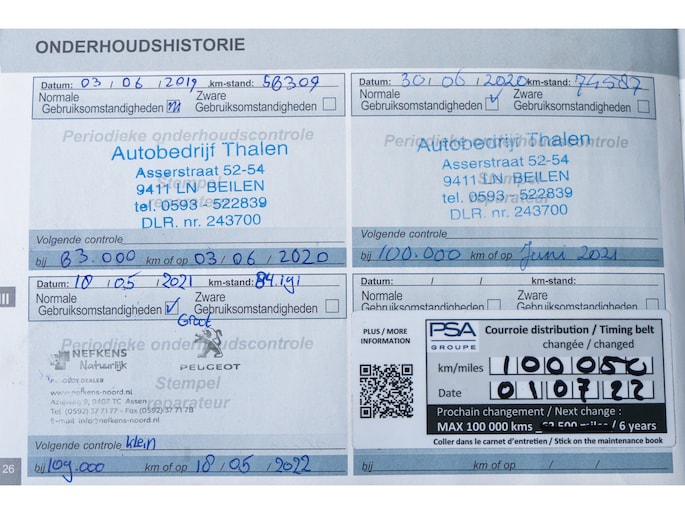 ONDERHOUDSHISTORIE
Datum: 03 / 06 / 2019 km-stand: 58309
Normale Gebruiksomstandigheden
Zware Gebruiksomstandigheden
Periodieke onderhoudscontrole
Autobedrijf Thalen
Asserstraat 52-54
9411 LN BEILEN
tel. 0593 - 522839
DLR. nr. 243700
Stempel
reparateur
Volgende controle
bij 83.000 km of op 03 / 06 / 2020
Datum: 30 / 06 / 2020 km-stand: 74587
Normale Gebruiksomstandigheden
Zware Gebruiksomstandigheden
Periodieke onderhoudscontrole
Autobedrijf Thalen
Asserstraat 52-54
9411 LN BEILEN
tel. 0593 - 522839
DLR. nr. 243700
Stempel
reparateur
Volgende controle
bij 100.000 km of op Juni 2021
Datum: 18 / 05 / 2021 km-stand: 84.191
Normale Gebruiksomstandigheden
Zware Gebruiksomstandigheden
Groot
Periodieke onderhoudscontrole
NEFKENS
Natuurlijk
PEUGEOT
DEALER
www.nefkens-noord.nl
9407 TC Assen
Tel (0592) 37 71 77 - Fax (0592) 37 71 78
E-mail info@nefkens-noord.nl
Stempel
reparateur
Volgende controle klein
bij 109.000 km of op 18 / 05 / 2022
Datum: / / km-stand:
Normale
Zware
PLUS / MORE
INFORMATION
PSA
GROUPE
Courroie distribution / Timing belt
changée / changed
km/miles 100050
Date 010722
Prochain changement / Next change :
MAX 100 000 kms 62 500 miles / 6 years
Coller dans le carnet d'entretien / Stick on the maintenance book
bij km of op / /
III
26